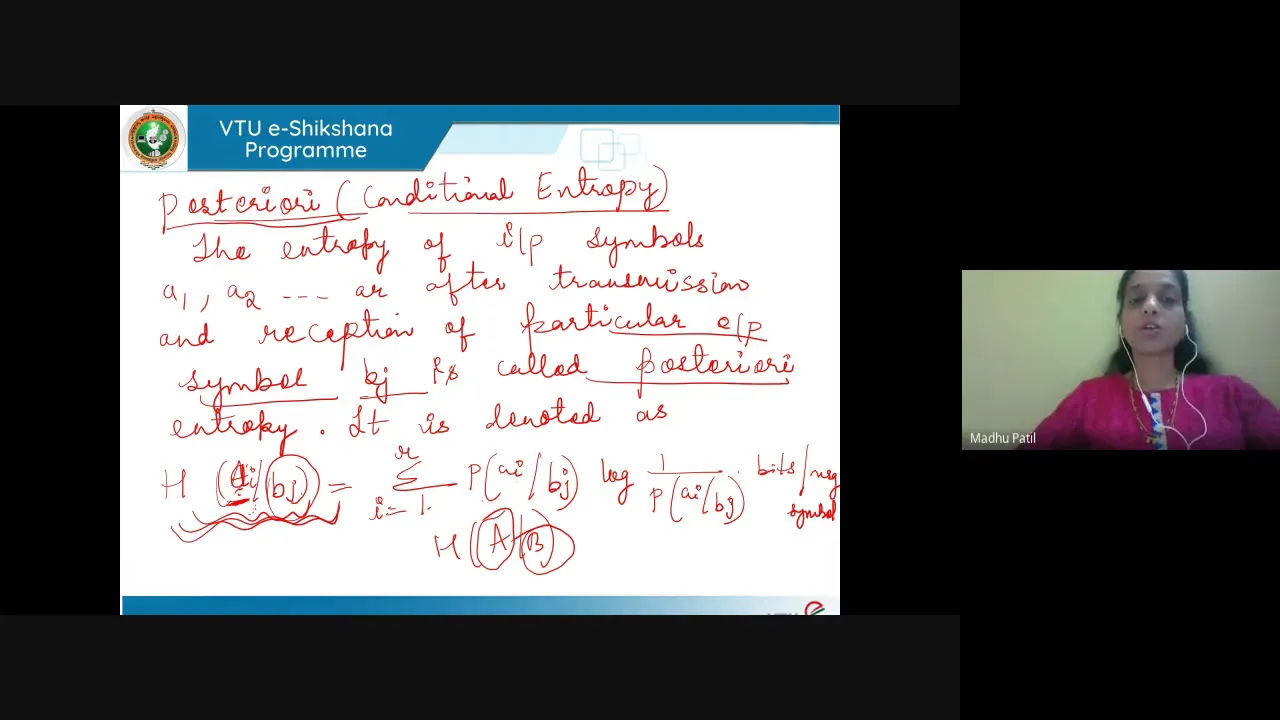 VTU e-Shikshana
Programme
Posteriori (Conditional Entropy)
The entropy of i/p symbols
a1, a2 --- ar after transmission
and reception of particular o/p
symbol bj is called posteriori
entropy. It is denoted as
H (Ai/bj) = Σ i=1 r P(ai/bj) log 1/P(ai/bj) bits/msg symbol
H (A/B)
Madhu Patil